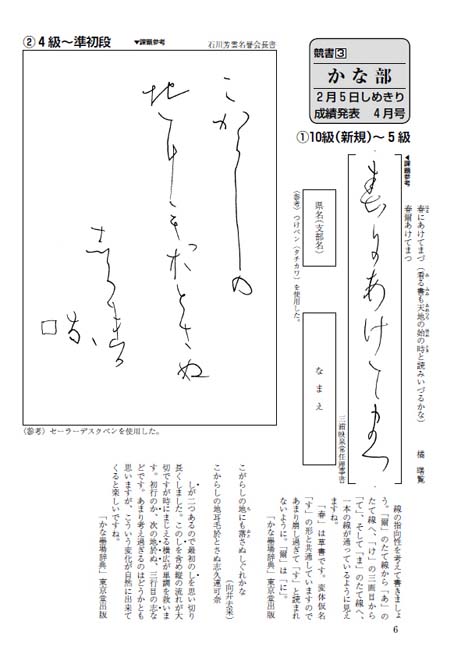 競書③
かな部
2月5日しめきり
成績発表 4月号
①10級(新規)～5級
▼課題参考
春にあけてまづ(看る書も天地の始の時と読みいづるかな)
春爾あけてまつ
橘 曙覧
春爾あけてまつ
三上映泉常任理事書
県名(支部名)
なまえ
(参考)つけペン(タチカワ)を使用した。
線の指向性を考えて書きましょ
う。「爾」のたて線から「あ」の
たて線へ、「け」の三画目から
「て」、そして「ま」のたて線へ、
一本の線が通っているように見え
ますね。
「春」は草書です。変体仮名
「す」の形と共通していますので
あまり崩し過ぎて「す」と読まれ
ないように。「爾」は「に」。
「かな墨場辞典」東京堂出版
②4級～準初段
▼課題参考
石川芳雲名誉会長書
こからしの
地耳毛於とさぬ
志久連可奈
(参考)セーラーデスクペンを使用した。
こがらしの地にも落さぬしぐれかな
(向井去来)
こからしの地耳毛於とさぬ志久連可奈
しが二つあるので最初のしを思い切り
長くしました。このしを含め縦の流れが大
切ですが時にまじえる横広が単調を救いま
す。初行のか、次の地於ぬ、三行目の志な
どです。あまり考え過ぎるのはどうかとも
思いますが、こういう変化が自然に出来て
くると楽しいですね。
「かな墨場辞典」東京堂出版
6